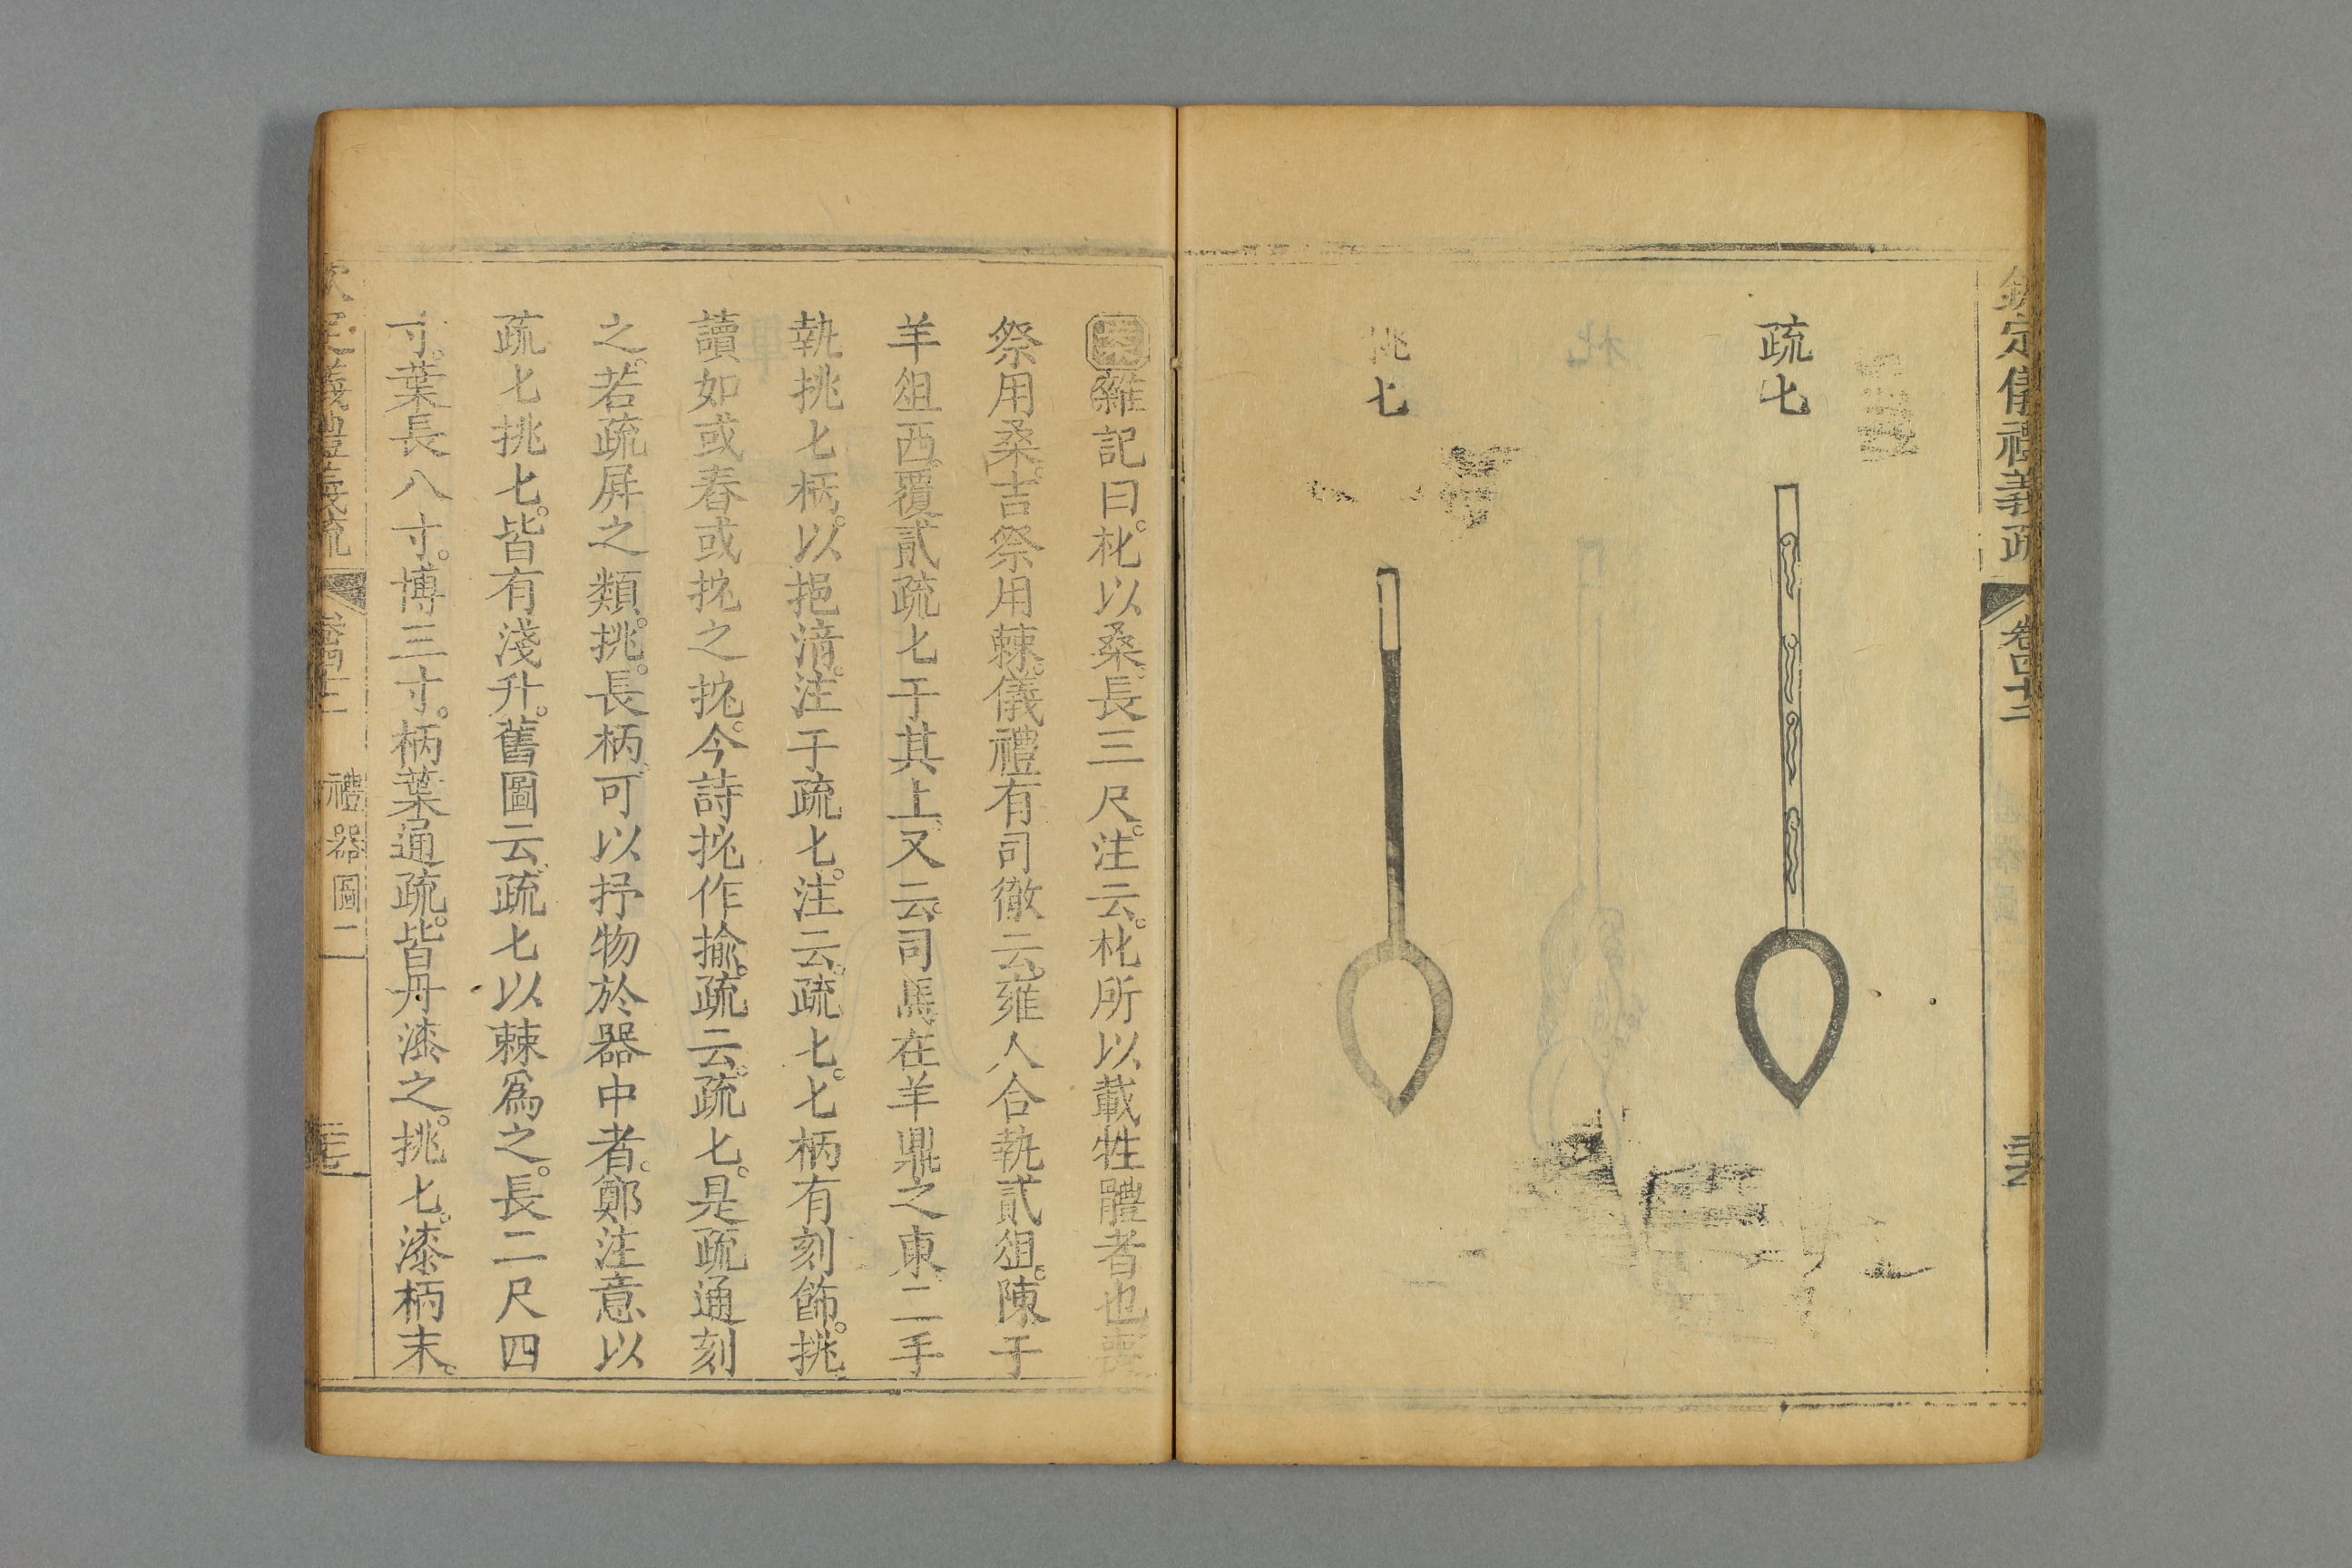 欽定儀禮義疏 卷四十二
疏匕
挑匕
雜記曰。枇以桑。長三尺。注云。枇所以載牲體者也。喪
祭用桑。吉祭用棘。儀禮有司徹云。雍人合執貳俎。陳于
羊俎西。覆貳疏匕于其上。又云。司馬在羊鼎之東。二手
執挑匕柄。以挹湆。注于疏匕。注云。疏匕。匕柄有刻飾。挑。
讀如或舂或抭之抭。今詩抭作揄。疏云。疏匕。是疏通刻
之。若疏屏之類。挑。長柄。可以抒物於器中者。鄭注意以
疏匕挑匕。皆有淺升。舊圖云。疏匕以棘爲之。長二尺四
寸。葉長八寸。博三寸。柄葉通疏。皆丹漆之。挑匕。漆柄末。
禮器圖二